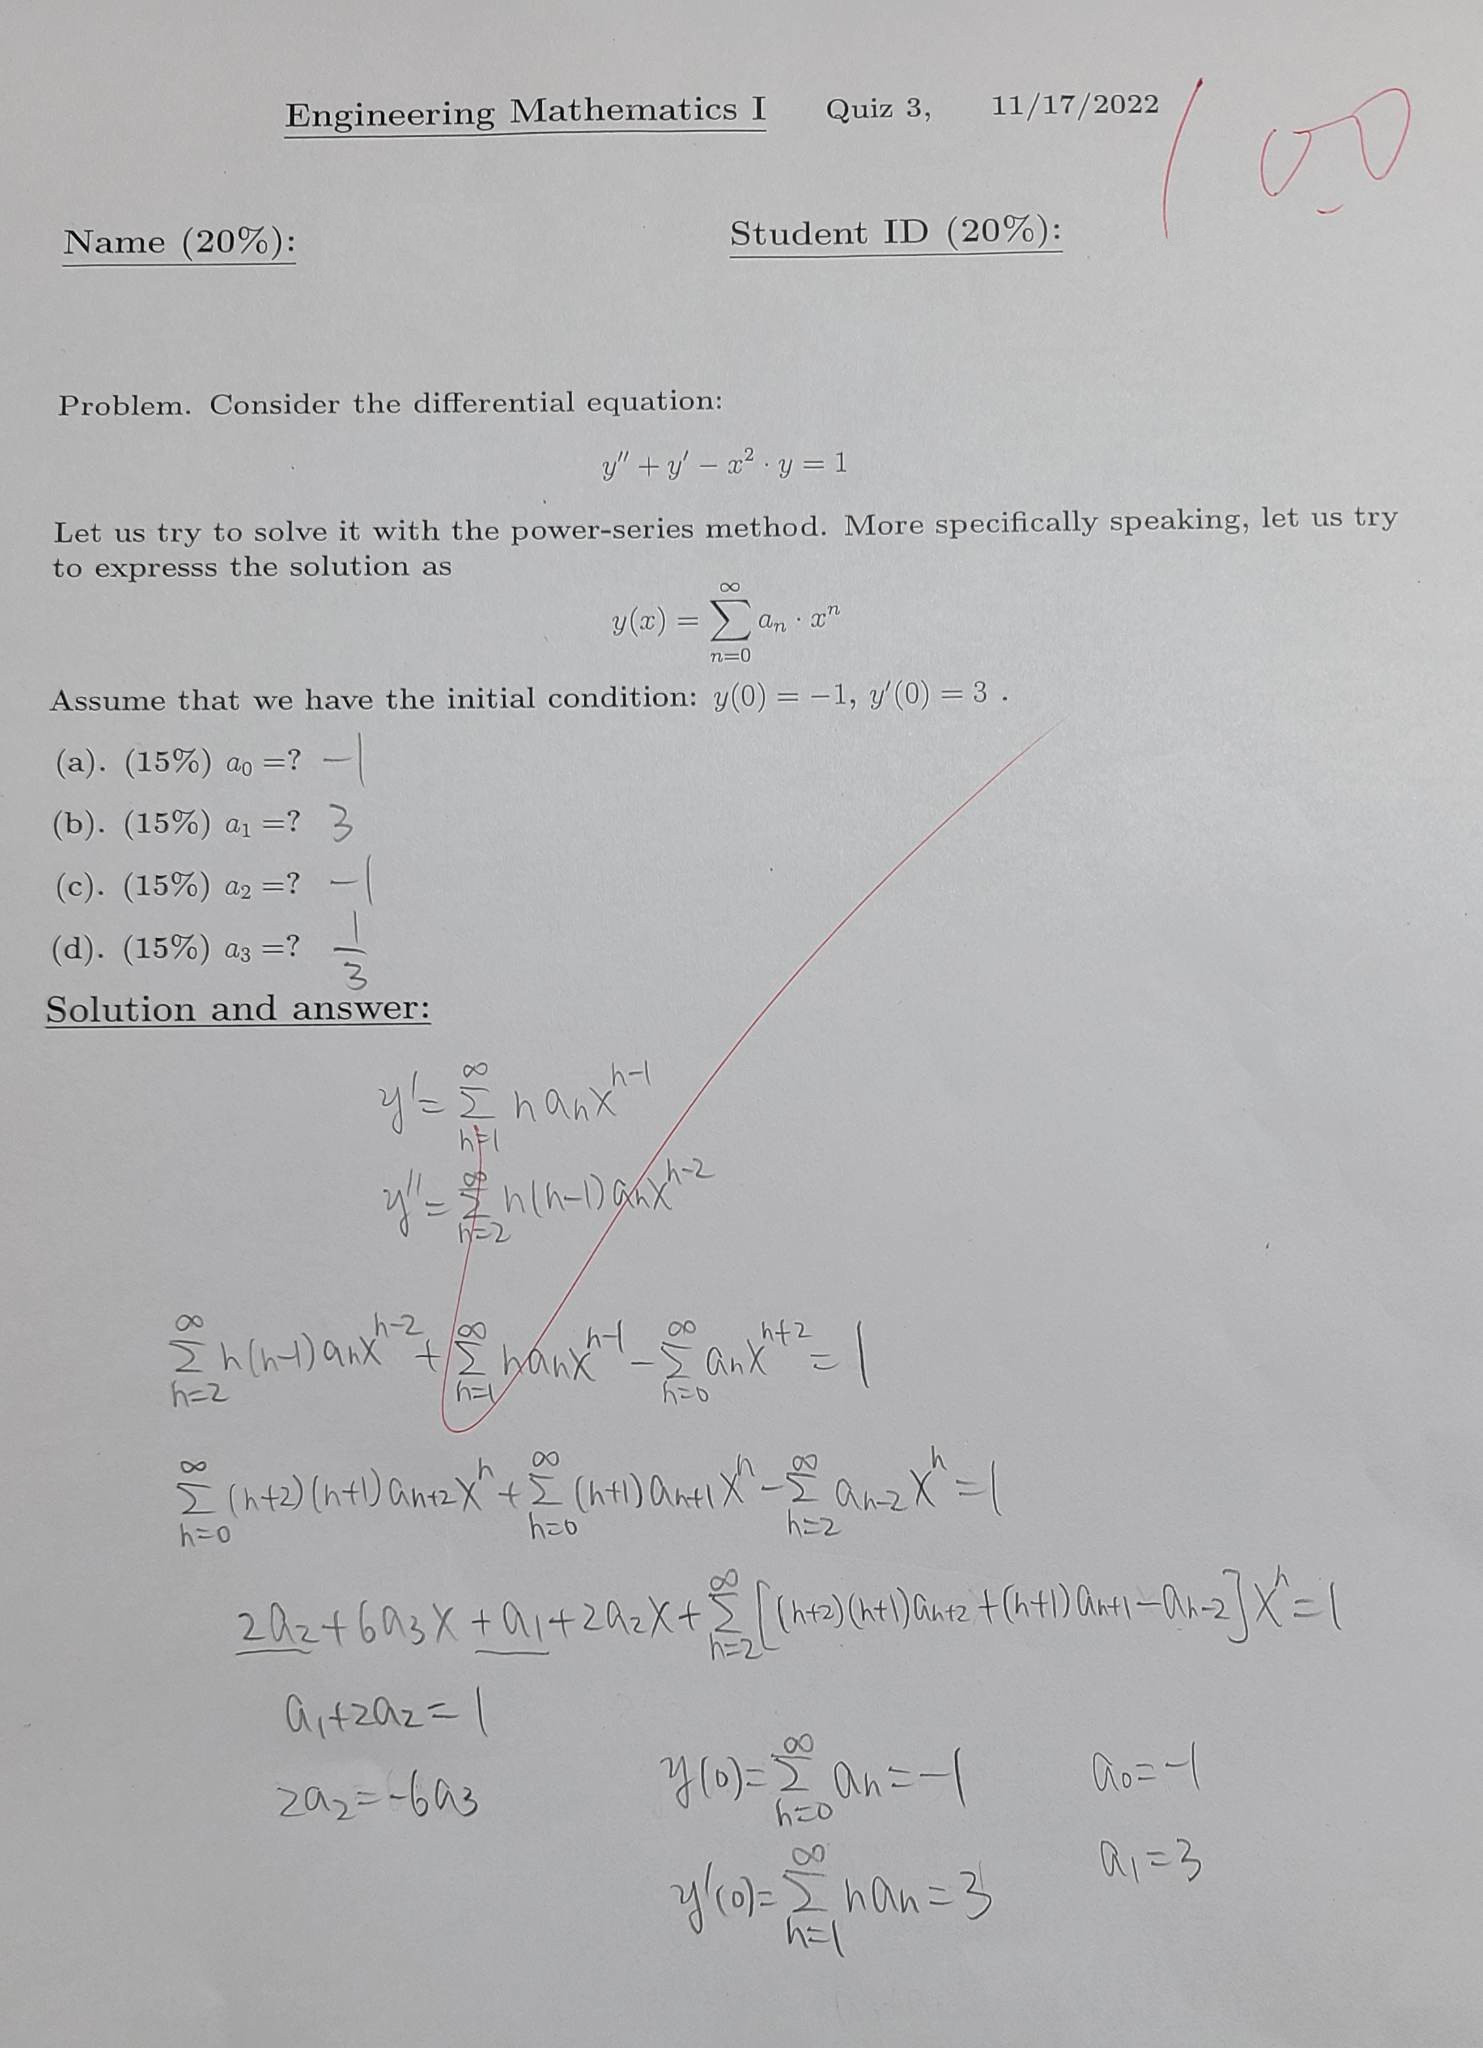 Engineering Mathematics I Quiz 3, 11/17/2022
100
Name (20%): Student ID (20%):
Problem. Consider the differential equation:
y'' + y' − x² · y = 1
Let us try to solve it with the power-series method. More specifically speaking, let us try
to expresss the solution as
y(x) = ∑_{n=0}^{∞} aₙ · xⁿ
Assume that we have the initial condition: y(0) = −1, y'(0) = 3 .
(a). (15%) a₀ =? −1
(b). (15%) a₁ =? 3
(c). (15%) a₂ =? −1
(d). (15%) a₃ =? 1/3
Solution and answer:
y' = ∑_{n=1}^{∞} n aₙ x^{n-1}
y'' = ∑_{n=2}^{∞} n(n-1) aₙ x^{n-2}
∑_{n=2}^{∞} n(n-1) aₙ x^{n-2} + ∑_{n=1}^{∞} n aₙ x^{n-1} − ∑_{n=0}^{∞} aₙ x^{n+2} = 1
∑_{n=0}^{∞} (n+2)(n+1) a_{n+2} xⁿ + ∑_{n=0}^{∞} (n+1) a_{n+1} xⁿ − ∑_{n=2}^{∞} a_{n-2} xⁿ = 1
2a₂ + 6a₃x + a₁ + 2a₂x + ∑_{n=2}^{∞} [(n+2)(n+1) a_{n+2} + (n+1) a_{n+1} − a_{n-2}] xⁿ = 1
a₁ + 2a₂ = 1
2a₂ = −6a₃
y(0) = ∑_{n=0}^{∞} aₙ = −1 a₀ = −1
y'(0) = ∑_{n=1}^{∞} n aₙ = 3 a₁ = 3